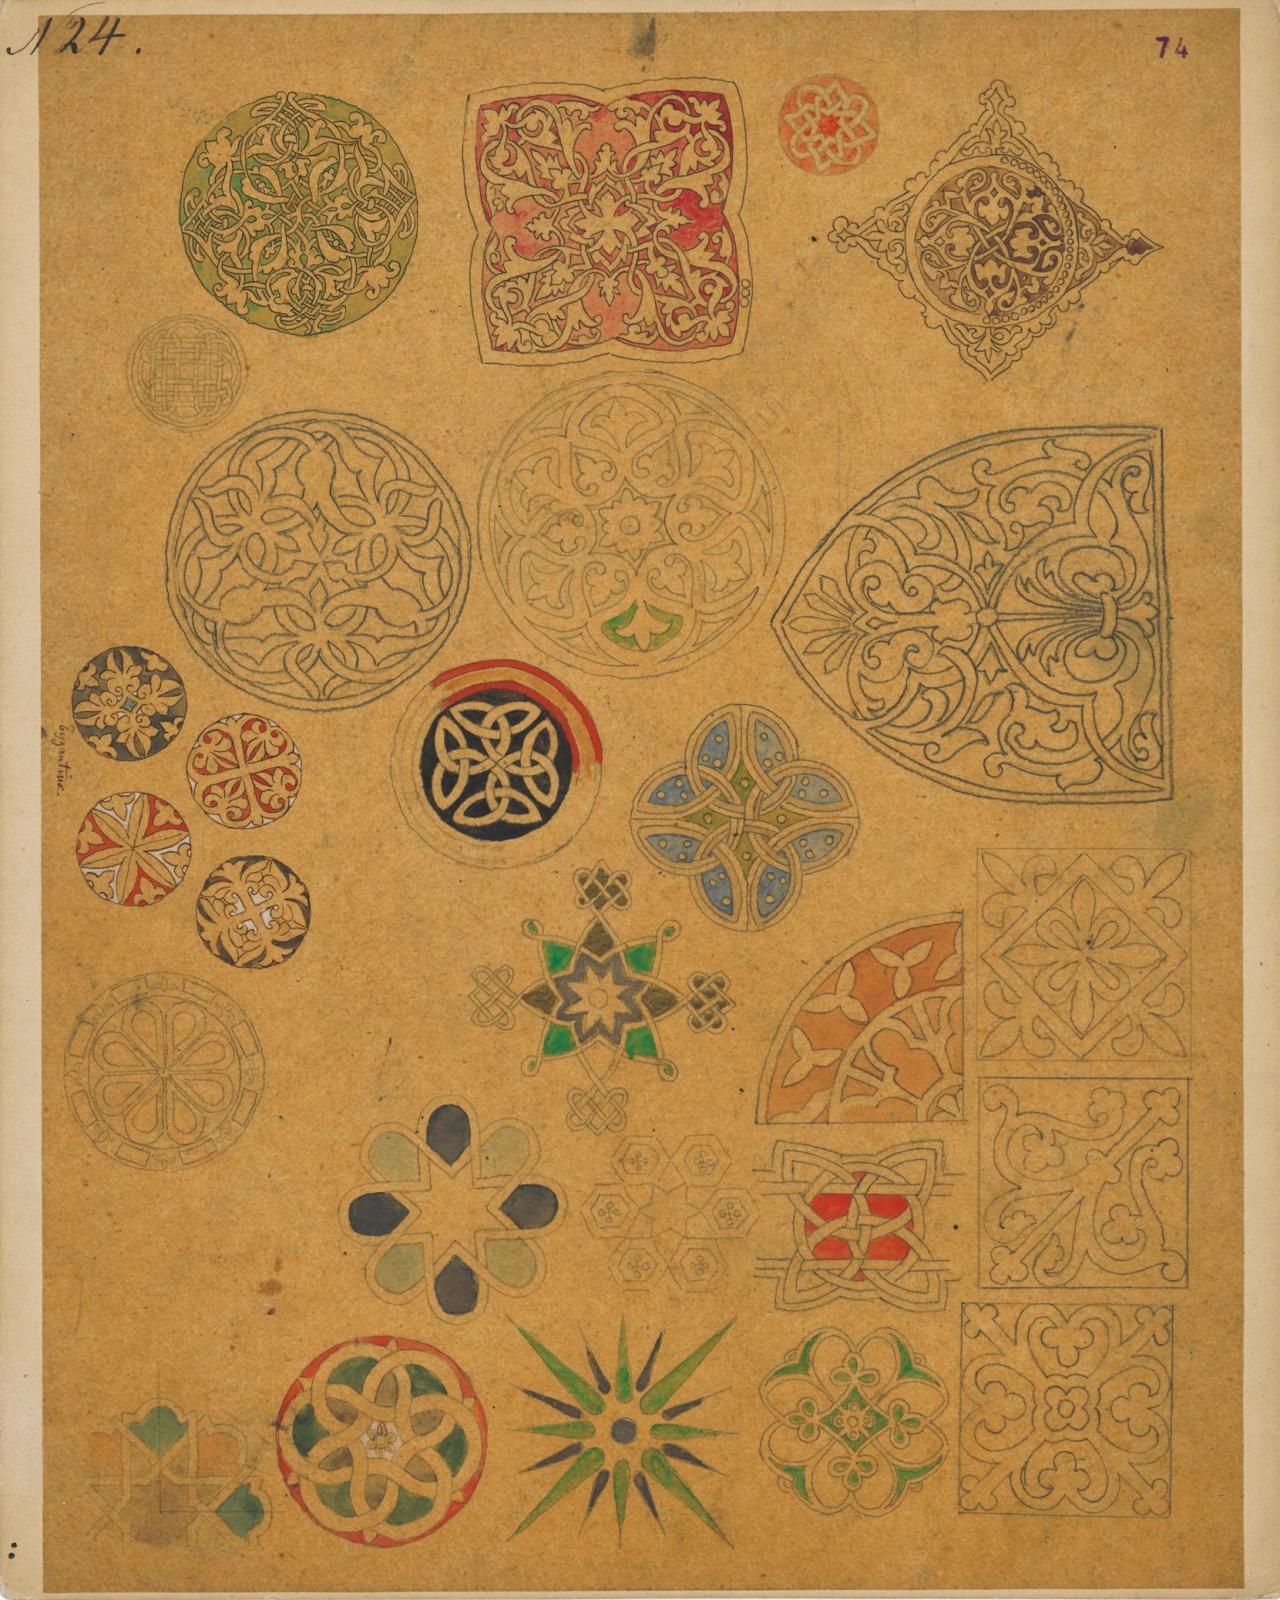 N 24.
74
byzantine.